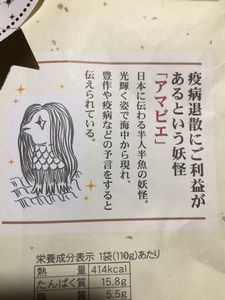 疫病退散にご利益が
あるという妖怪
「アマビエ」
日本に伝わる半人半魚の妖怪。
光輝く姿で海中から現れ、
豊作や疫病などの予言をすると
伝えられている。
栄養成分表示 1袋(110g)あたり
熱量 414kcal
たんぱく質 15.8g
脂質 5.5g